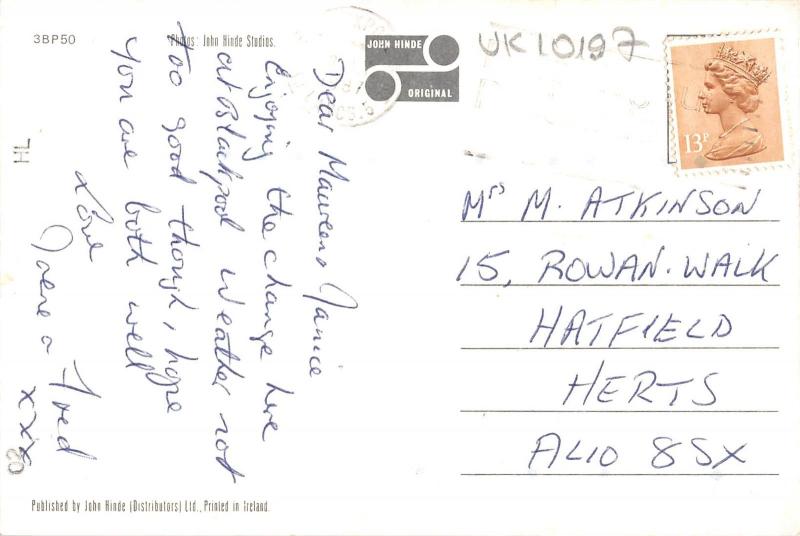 3BP50
Photos: John Hinde Studios.
JOHN HINDE
ORIGINAL
UK10197
13P
Dear Maureen & Janice
Enjoying the change here
at Blackpool weather not
too good though, hope
you are both well
Love
Irene & Fred
xxx
Mrs M. ATKINSON
15, ROWAN. WALK
HATFIELD
HERTS
AL10 8SX
HL
20
Published by John Hinde (Distributors) Ltd., Printed in Ireland.